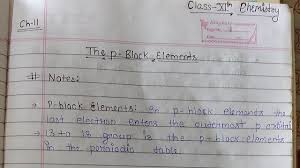 Class-XIth Chemistry
Ch-11
The p-Block Elements
# Notes:
→ P-block Elements: In p-block elements the
last electron enters the outermost p orbital
→ 13 to 18 group is the p-block elements
in the periodic table.